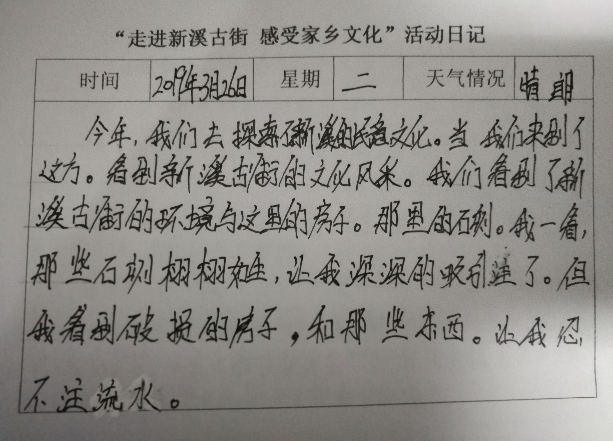 “走进新溪古街 感受家乡文化”活动日记
时间 2019年3月26日 星期 二 天气情况 晴朗
今年,我们去探索了新溪的民意文化。当我们来到了
这方。看到新溪古街的文化风采。我们看到了新
溪古街的环境与这里的房子。那里的石刻。我一看,
那些石刻栩栩如生,让我深深的吸引住了。但
我看到破损的房子,和那些东西。让我忍
不住流水。